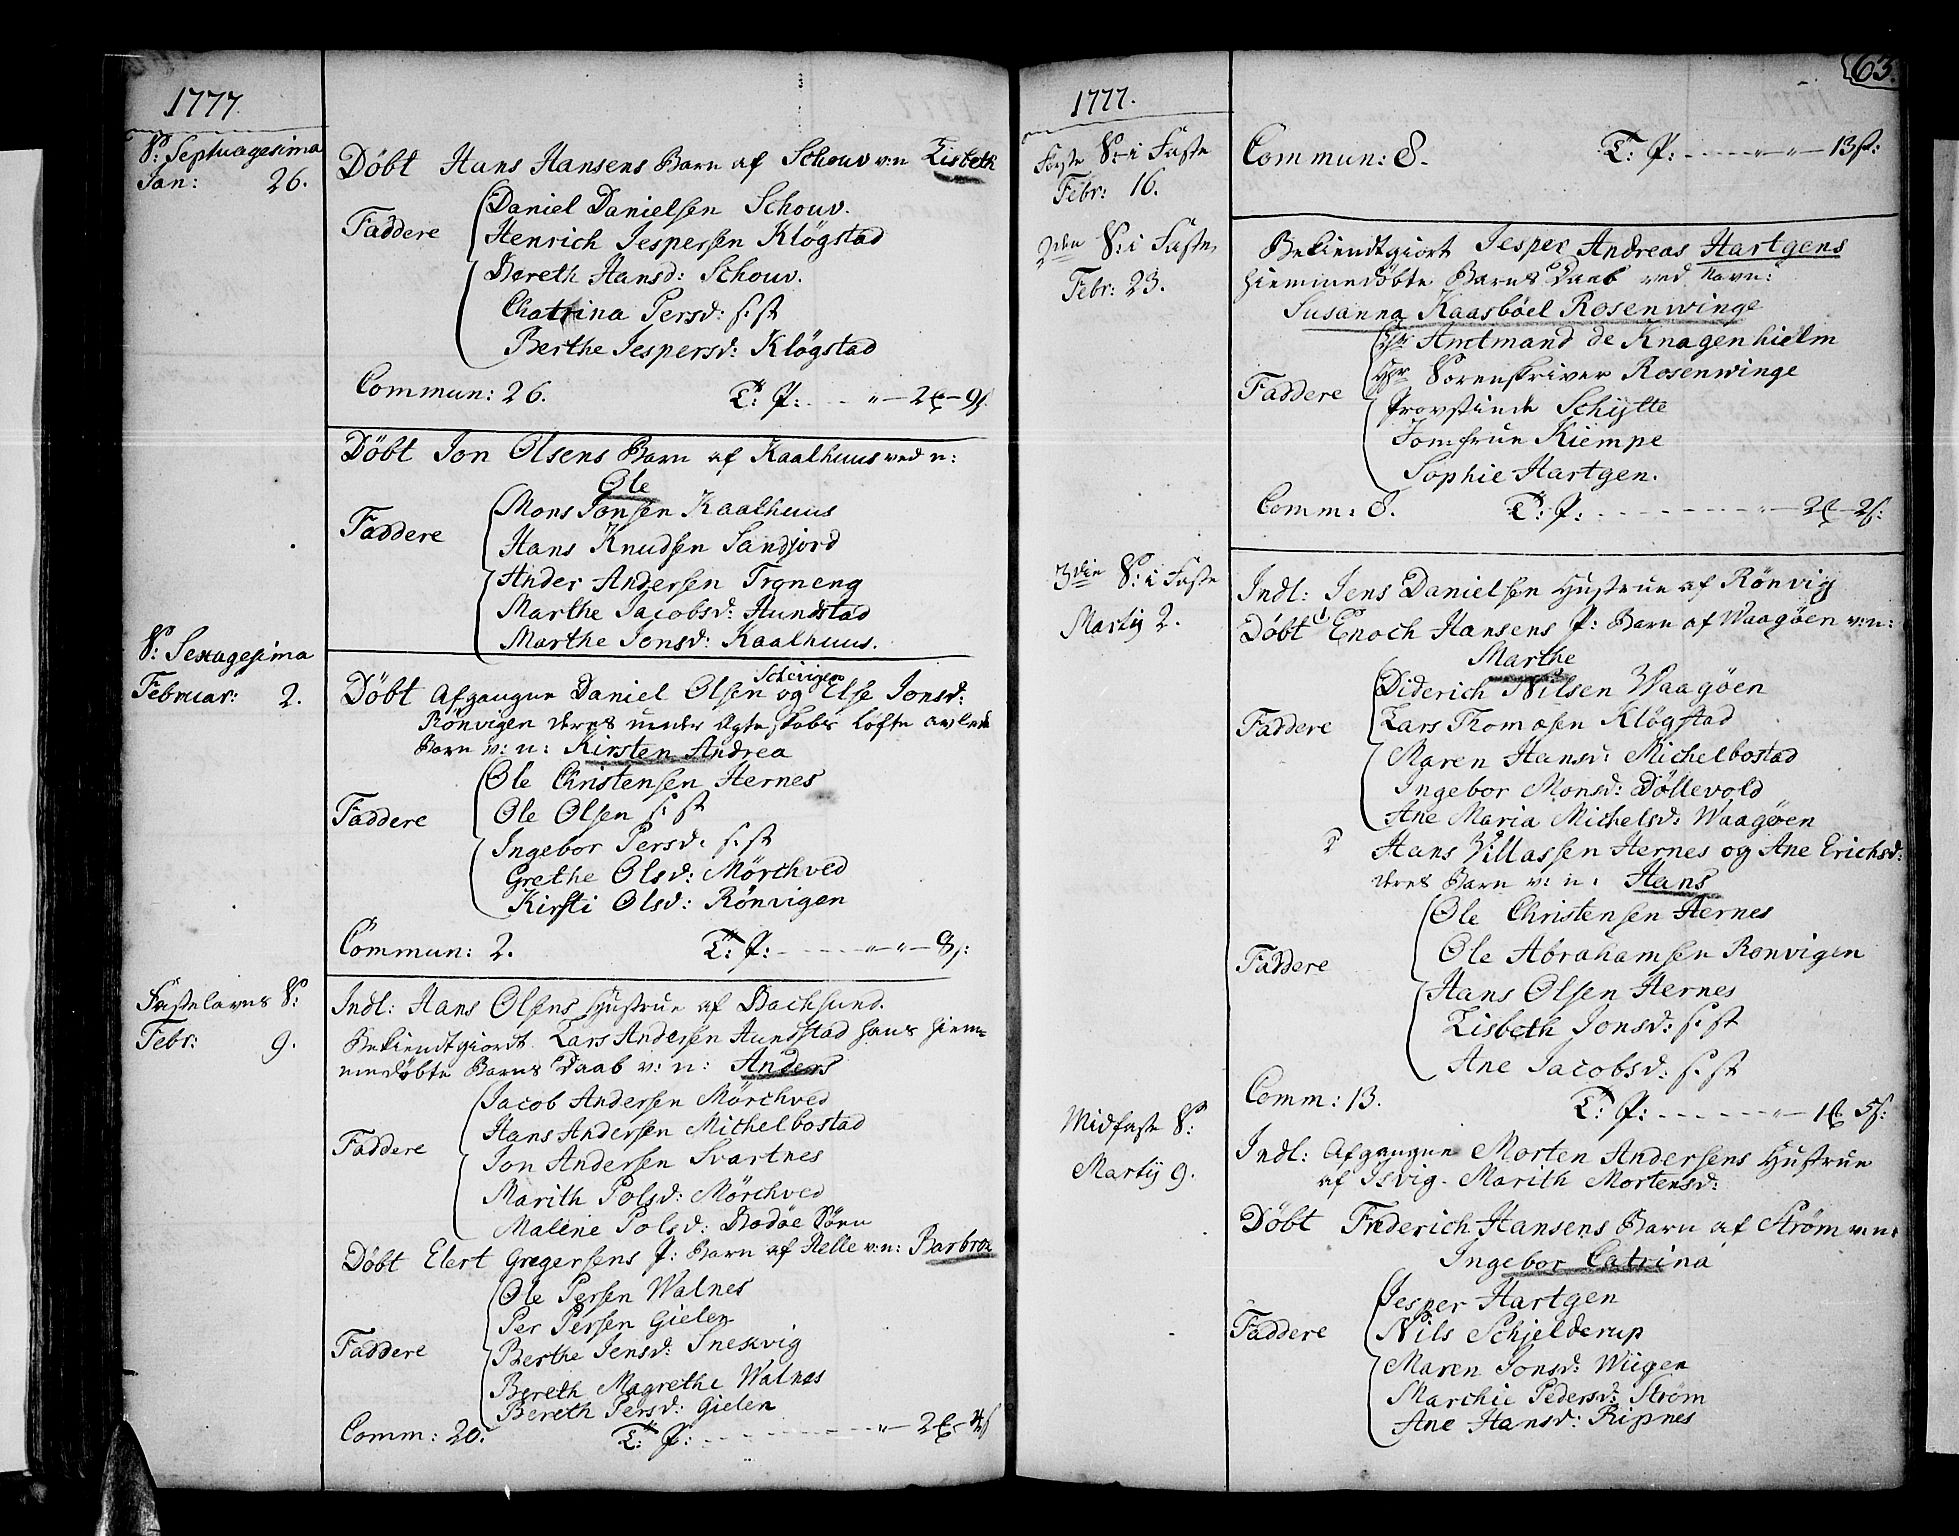 1777.
S: Septuagesima
Jan: 26.
Döbt Hans Hansens Barn af Schouv v: n Lisbeth
Daniel Danielsen Schouv.
Faddere
Henrich Jespersen Klögstad
Bereth Hansd: Schouv.
Chatrina Persd: s: st
Berthe Jespersd: Klögstad
Commun: 26. T: P: - - - " - 2 - 9 s.
Döbt Jon Olsens Barn af Kaalhuus ved n:
Ole
Mons Jonsen Kaalhuus
Faddere
Hans Knudsen Sandjord
Ander Andersen Troneng
Marthe Jacobsd: Hundstad
Marthe Jonsd: Kaalhuus.
S: Sexagesima
Februar: 2.
Döbt Afgangne Daniel Olsen og Else Jonsd:
Rönvigen deres under Ægteskabs Löfte avlede
Barn v: n: Kirsten Andrea
Ole Christensen Hernes
Faddere
Ole Olsen s: st
Ingebor Persd: s: st
Grethe Olsd: Mörchved
Kirsti Olsd: Rönvigen
Commun: 2. T: P: - - - " - " - 8 s:
Fastelavns S:
Febr: 9.
Indl: Hans Olsens Hustrue af Bachsund.
Bekiendtgiordt Lars Andersen Hundstad hans hiem-
medöbte Barns Daab v: n: Anders
Jacob Andersen Mörchved
Hans Andersen Michelbostad
Faddere
Jon Andersen Svartnes
Marith Polsd: Mörchved
Malene Polsd: Bodöe
Döbt Elert Gregersens P: Barn af Helle v: n: Barbroe
Ole Persen Walnes
Per Persen Gielen
Faddere
Berthe Jensd: Snekvig
Bereth Magrethe Walnes
Bereth Persd: Gielen
Comm: 20. T: P: - - - " - 2 - 4 s
63.
1777.
Förste S: i Faste
Febr: 16.
Commun: 8. T: P: - - - " - " - 13 s:
2den S: i Faste,
Febr: 23.
Bekiendtgiort Jesper Andreas Hartgens
hiemmedöbte Barns Daab ved Navn:
Susanna Kaasböel Rosenwinge
Hr Amtmand de Knagenhielm
Hr Sorenskriver Rosenwinge
Faddere
Provstinde Schytte
Jomfrue Kiempe
Sophie Hartgen.
Comm: 8. T: P: - - - " - 2 - 2 s:
3die S: i Faste
Martij 2.
Indl: Jens Danielsen Hustrue af Rönvig
Döbt Enoch Hansens P: Barn af Waagöen v: n:
Marthe
Diderich Nilsen Waagöen
Faddere
Lars Thomæsen Klögstad
Maren Hansd: Michelbostad
Ingebor Monsd: Döllevold
Ane Maria Michelsd: Waagöen
2 Hans Villassen Hernes og Ane Erichsd:
deres Barn v: n: Hans
Ole Christensen Hernes
Faddere
Ole Abrahamsen Ronvigen
Hans Olsen Hernes
Lisbeth Jonsd: s: st
Ane Jacobsd: s: st
Comm: 13. T: P: - - - " - 1 5 s:
Midfaste S:
Martij 9.
Indl: Afgangne Morten Andersens Hustrue
af Isvig. Marith Mortensd:
Döbt Friderich Hansens Barn af Ström v: n:
Ingebor Catrina
Jesper Hartgen
Faddere
Nils Schjelderup
Maren Jonsd: Wiigen
Marchie Pedersd: Ström
Ane Hansd: Ripnes